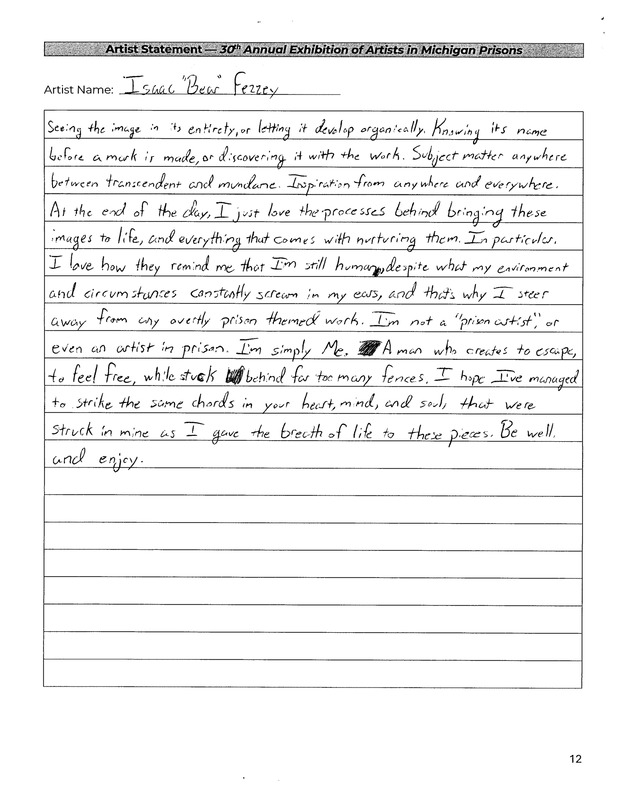 Artist Statement — 30th Annual Exhibition of Artists in Michigan Prisons
Artist Name: Isaac "Bear"
Seeing the image in its entirety, or letting it develop organically. Knowing its name
before a mark is made, or discovering it with the work. Subject matter anywhere
between transcendent and mundane. Inspiration from anywhere and everywhere.
At the end of the day, I just love the processes behind bringing these
images to life, and everything that comes with nurturing them. In particular,
I love how they remind me that I'm still human, despite what my environment
and circumstances constantly scream in my ears, and that's why I steer
away from any overtly prison themed work. I'm not a "prison artist", or
even an artist in prison. I'm simply Me. A man who creates to escape,
to feel free, while stuck behind far too many fences. I hope I've managed
to strike the same chords in your heart, mind, and soul, that were
struck in mine as I gave the breath of life to these pieces. Be well.
and enjoy.
12